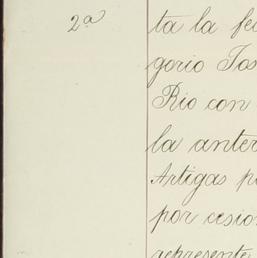 2ª
ta la fe
gorio Jos
Rio con
la anter
Artigas p
por cesio
represente